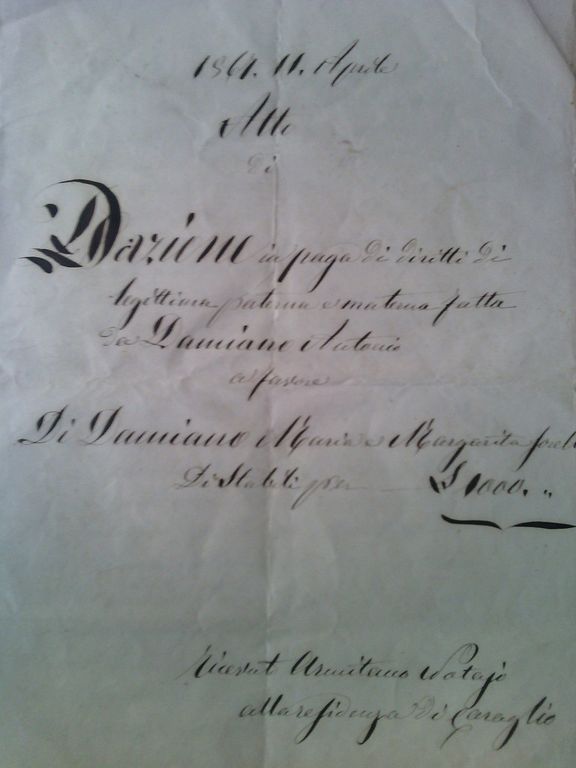 1861. 11. Aprile
Atto
di
Dazione in paga di diritti di
legittima paterna e materna fatta
da Damiano Antonio
a favore
Di Damiano Maria e Margarita sorelle
Di Stabili per £ 1000. "
Armitano Notajo
alla residenza di Caraglio